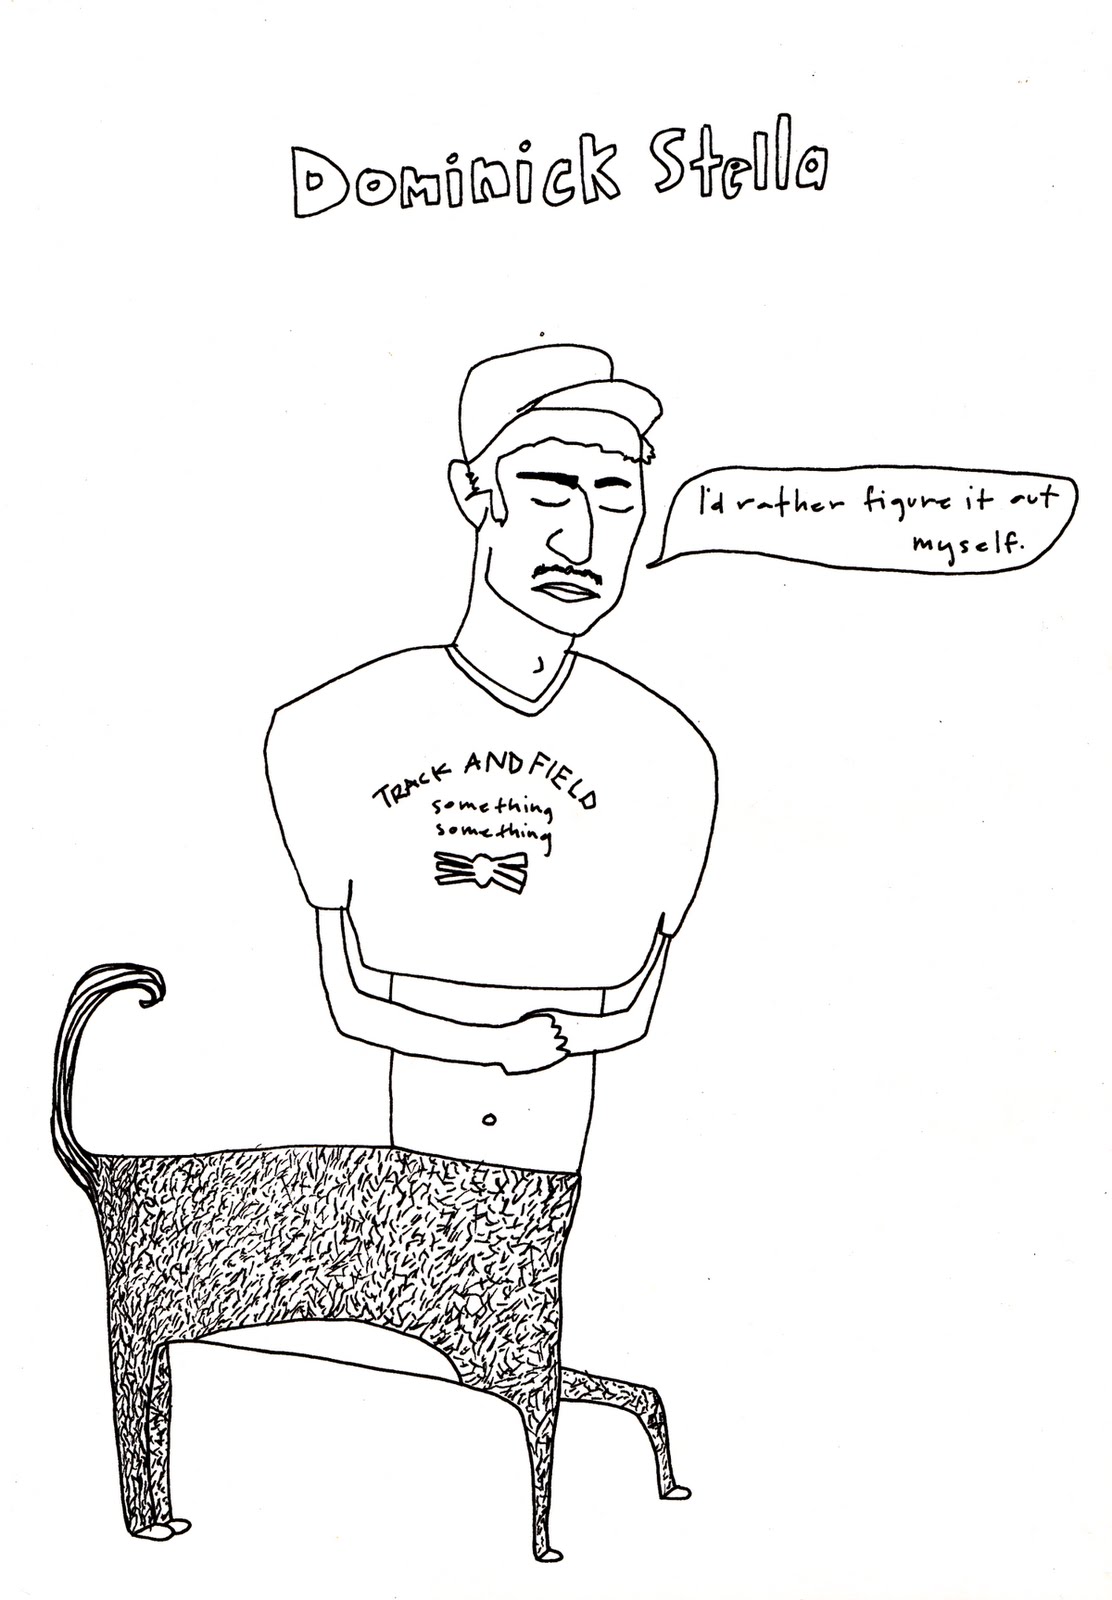 Dominick Stella
I'd rather figure it out
myself.
TRACK AND FIELD
something
something